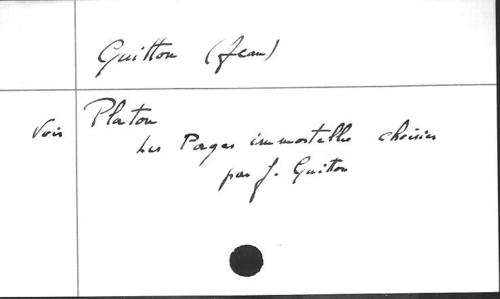 Guitton (Jean)
Voir Platon
Les Pages immortelles choisies
par J. Guitton